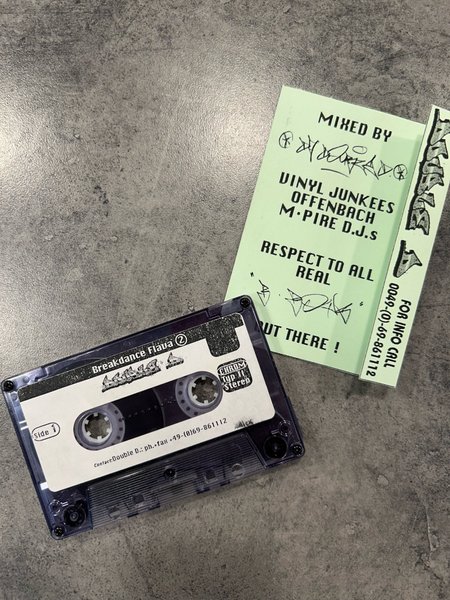 MIXED BY
VINYL JUNKEES
OFFENBACH
M·PIRE D.J.s
RESPECT TO ALL
REAL
OUT THERE !
DOUBLE D
FOR INFO CALL
0049-(0)-69-861112
Breakdance Flava 2
Side 1
CHROM
Typ II
Stereo
Contact Double D.: ph.+fax .49-(0)69-861112